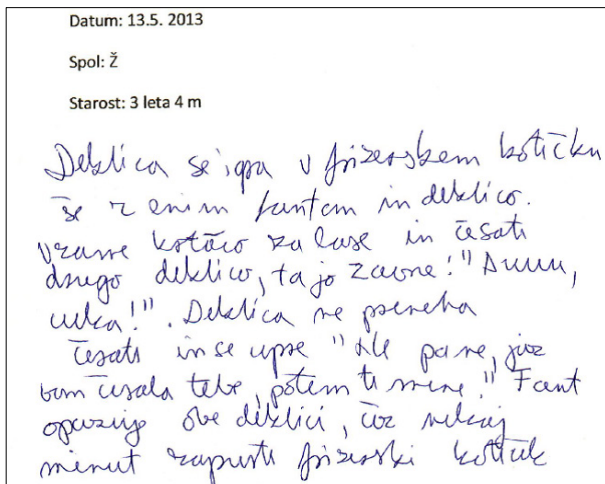 Datum: 13.5. 2013
Spol: Ž
Starost: 3 leta 4 m
Deklica se igra v frizerskem kotičku
še z enim fantom in deklico.
Vzame krtačo za lase in česati
drugo deklico, ta jo zavrne: "Auuu,
cuka!". Deklica ne preneha
česati in se upre "Ale pa ne, jaz
bom česala tebe, potem ti mene." Fant
opazuje obe deklici, čez nekaj
minut zapusti frizerski kotiček